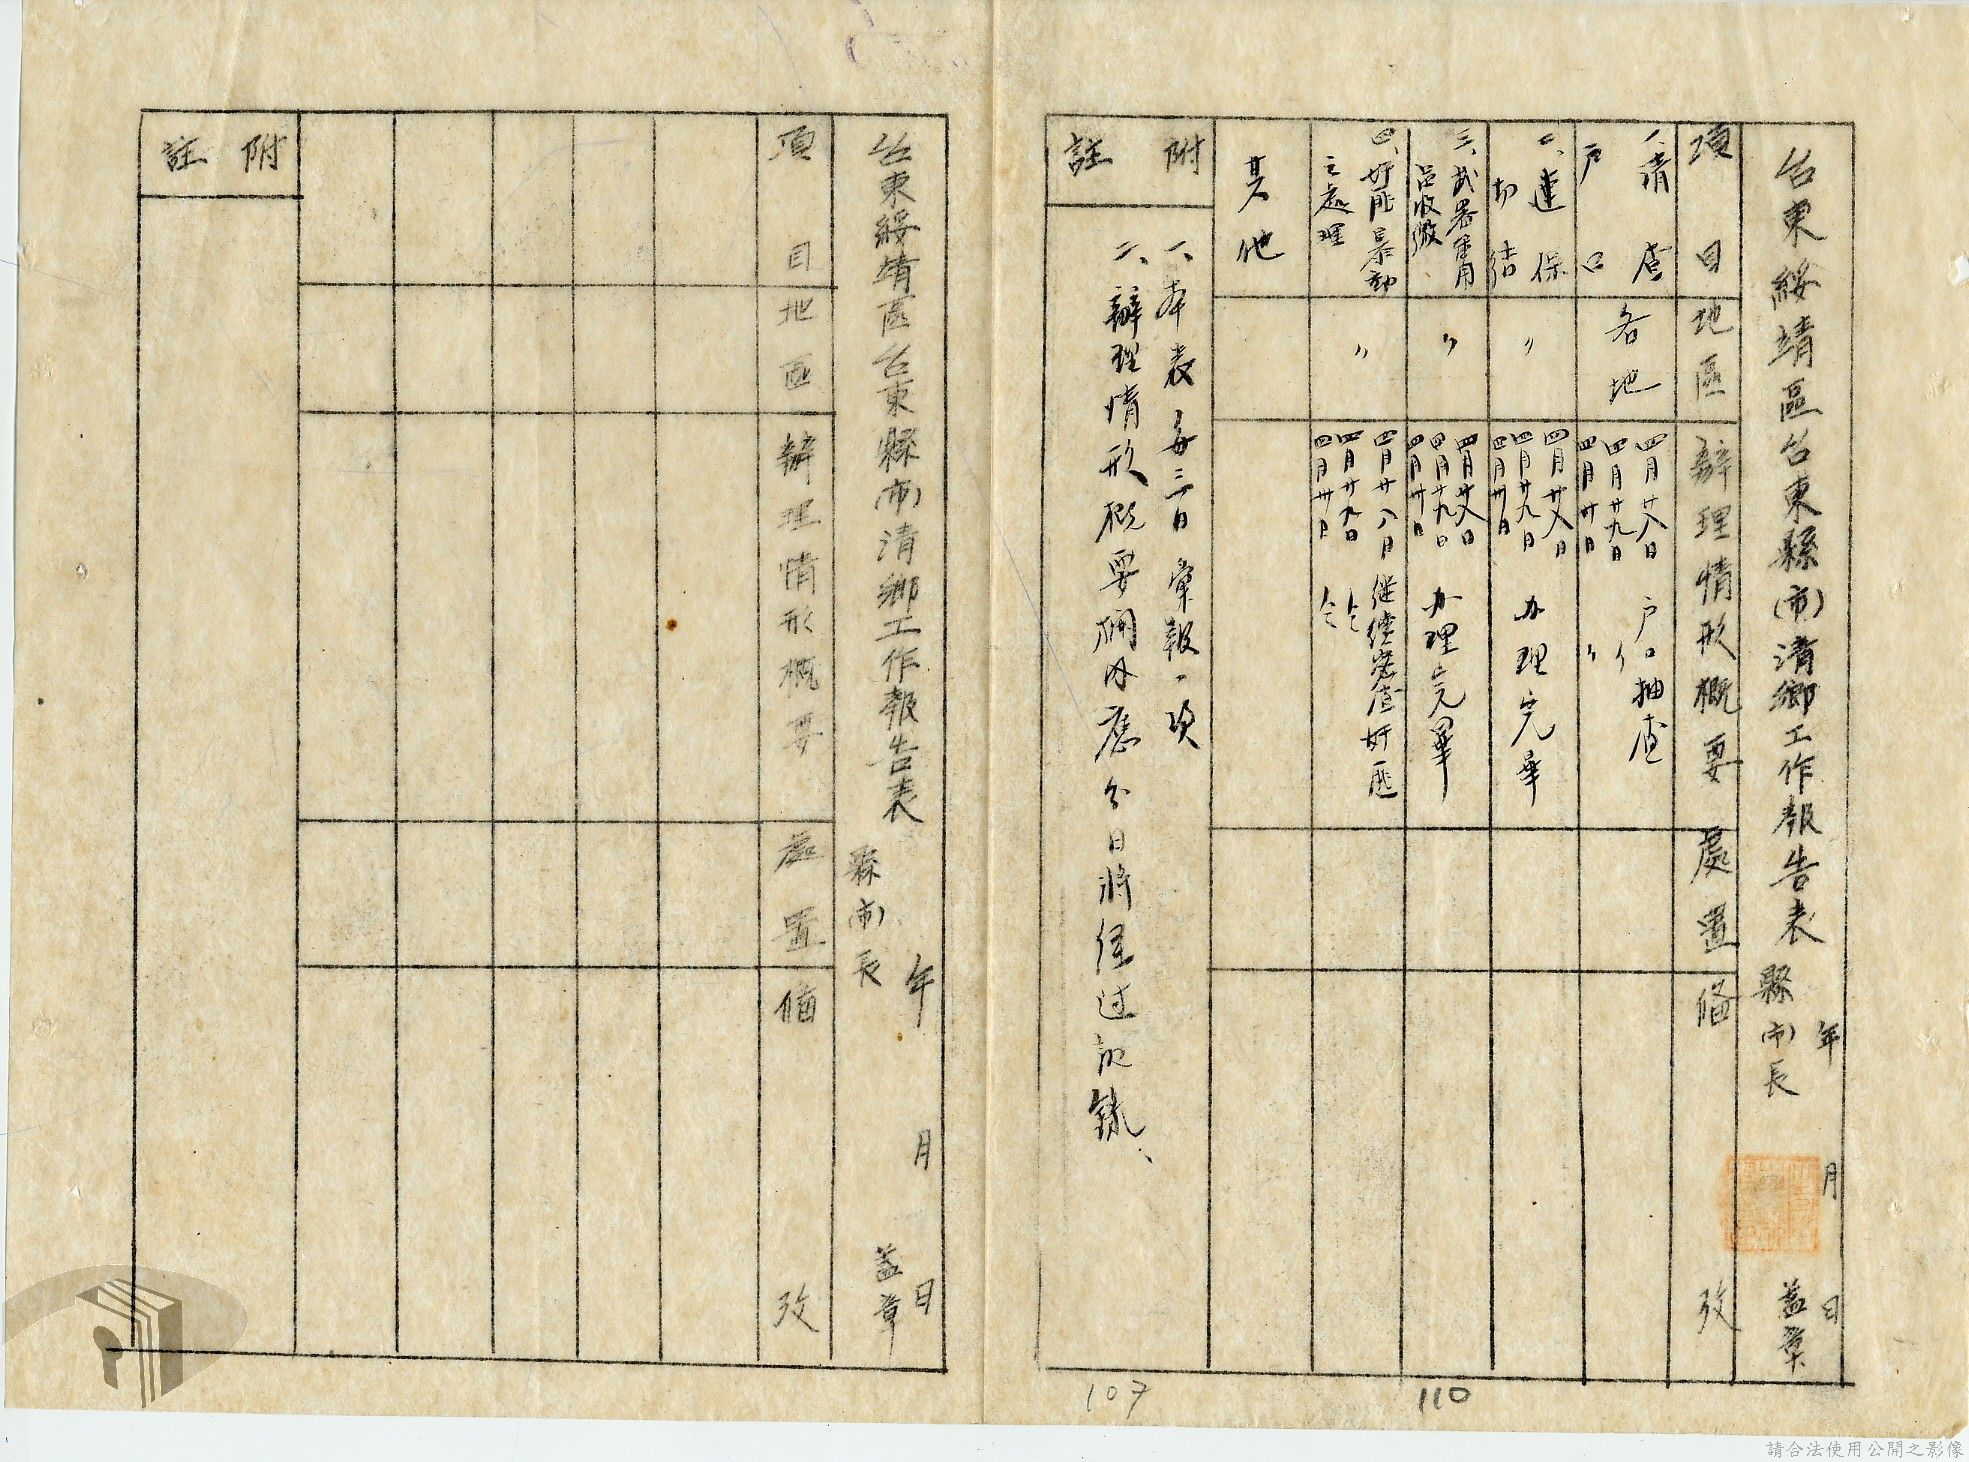 台東綏靖區台東縣(市)清鄉工作報告表 縣(市)長 蓋章
年 月 日
項目 地區 辦理情形概要 處置 備攷
一、清查戶口
各地
四月廿八日 戶口抽查
四月廿九日 〃
四月卅日 〃
二、連保切結
〃
四月廿八日
四月廿九日 办理完畢
四月卅日
三、武器軍用品收繳
〃
四月廿八日
四月廿九日 办理完畢
四月卅日
四、奸匪暴動之處理
〃
四月廿八日 继續密查奸匪
四月廿九日 仝
四月卅日 仝
其他
附註
一、本表每三日彙報一次
二、辦理情形概要欄內應分日將経过記錄、
107
110
台東綏靖區台東縣(市)清鄉工作報告表
縣(市)長 蓋章
年 月 日
項目 地區 辦理情形概要 處置 備攷
附註
請合法使用公開之影像